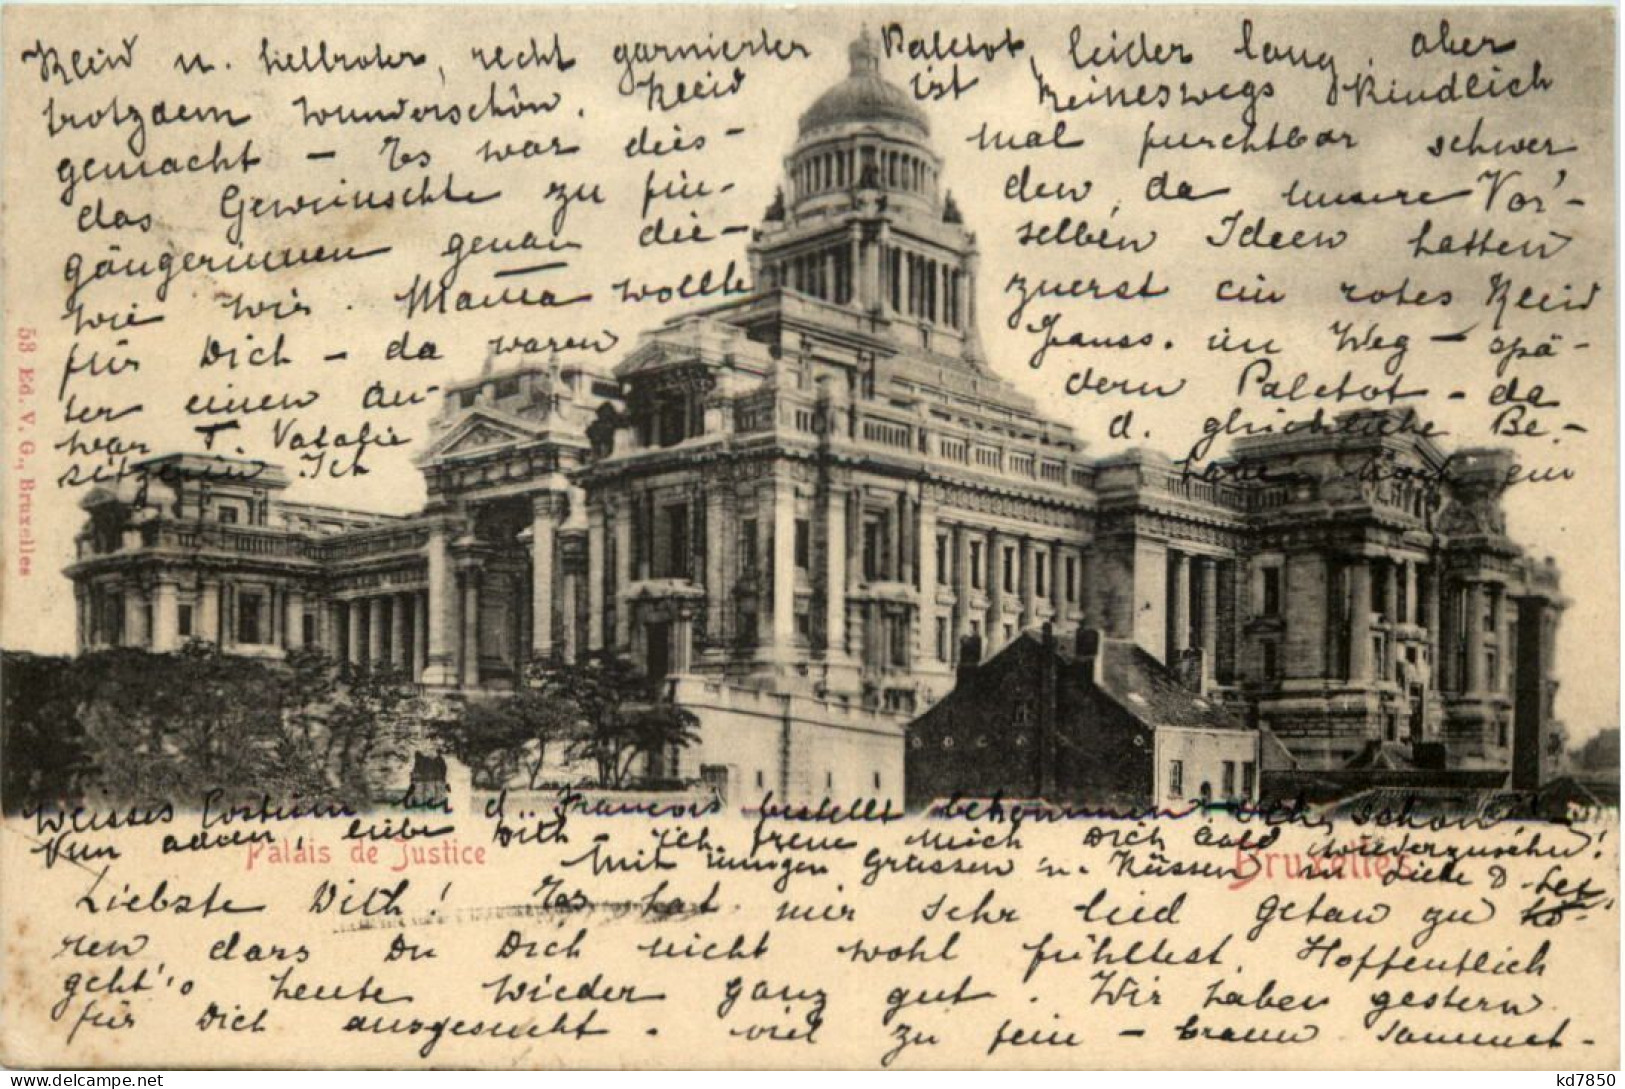 Kleid u. hellroter, recht garnierter Paletot, leider lang, aber
trotzdem wunderschön. Kleid ist keineswegs kindlich
gemacht – Es war dies- mal furchtbar schwer
das Gewünschte zu fin- den, da unsere Vor'-
gängerinnen genau die- selben Ideen hatten
wie wir. Mama wollte zuerst ein rotes Kleid
für Dich – da waren Franss. im Weg – spä-
ter einen an- dern Paletot – da
war T. Natalie d. glückliche Be-
sitzerin. Ich habe noch ein
53 Ed. V. G., Bruxelles
weisses Costüm bei d. Francois bestellt bekommen. sehr schön
Nun adieu, liebe Dith – Ich freue mich Dich bald wiederzusehn!
Palais de Justice
Bruxelles
Mit innigen Grüssen u. Küssen in Liebe D.
Liebste Dith! Es hat mir sehr leid getan zu hö-
ren, dass Du Dich nicht wohl fühltest. Hoffentlich
geht's heute wieder ganz gut. Wir haben gestern
für Dich ausgesucht. viel zu fein – braun Sammet-
kd7850